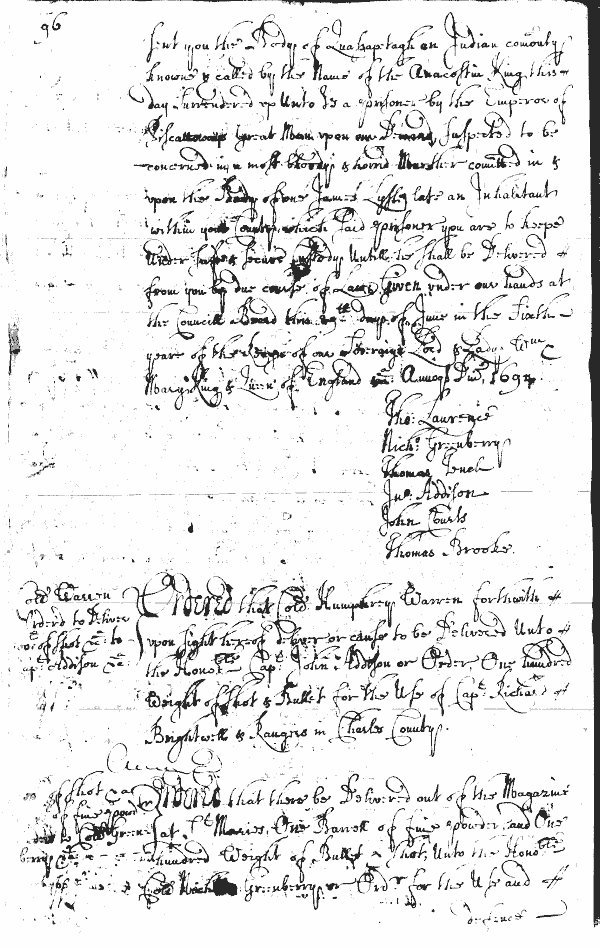 96
sent you the Body of Quasapetagh an Indian comonly
knowne & called by the Name of the Anacostin King, this
day Surrendered up Unto Us a prisoner by the Emperor of
Piscattoway Great Men upon our Demand, Suspected to be
concerned in a most bloody & horrid Murther comitted in &
upon the Body of one James Lysle late an Inhabitant
within your County, which said prisoner you are to keepe
under safe & secure Custody Untill he shall be Delivered
from you by due course of Law Given under our hands at
the Councill Board this day of June in the Sixth
yeare of the Reigne of our Sovereign Lord & Lady Wm &
Mary King & Queen of England &c Annoq Dni 1694.
Tho: Laurence
Nicho: Greenberry
Thomas Tench
Jno: Addison
John Courts
Thomas Brooke
Coll Warren
Orderd to Deliver
of shot &c to
Capt Addison &c
Ordered that Coll Humphrey Warren forthwith
upon sight hereof deliver or cause to be Delivered Unto
the Honoble Capt John Addison or Order One hundred
Weight of shot & Bullet for the Use of Capt Richard
Brightwell & Rangers in Charles County.
of shot &c
of fine powdr
to Coll Green
berry &c
Ordered that there be Delivered out of the Magazine
at St Maries, One Barrell of fine powder, and One
hundred Weight of Bullet & shot, Unto the Honoble
Coll Nicho Greenberry or Ordr for the Use and
defence